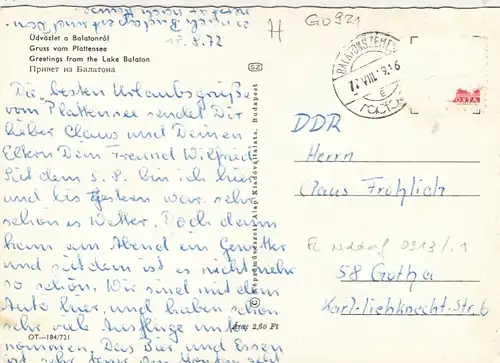 H
G0921
17.8.72
Üdvözlet a Balatonról
Gruss vom Plattensee
Greetings from the Lake Balaton
Привет из Балатона
BALATONSZEMES
OSTA
Die besten Urlaubsgrüße
vom Plattensee sendet Dir
lieber Claus und Deinen
Eltern Dein Freund Wilfried
Seit dem 5. 8. bin ich hier
und bis gestern war sehr
schönes Wetter. Doch dann
kam am Abend ein Gewitter
und seitdem ist es nicht mehr
so schön. Wir sind mit dem
Auto hier, und haben schon
sehr viele Ausflüge unter-
nommen. Das Bier und Essen
ist sehr
© Képzőművészeti Alap Kiadóvállalata, Budapest
OT—184/721
Ára: 2,60 Ft
DDR
Herrn
Claus Fröhlich
58 Gotha
Karl-Liebknecht-Str. 6